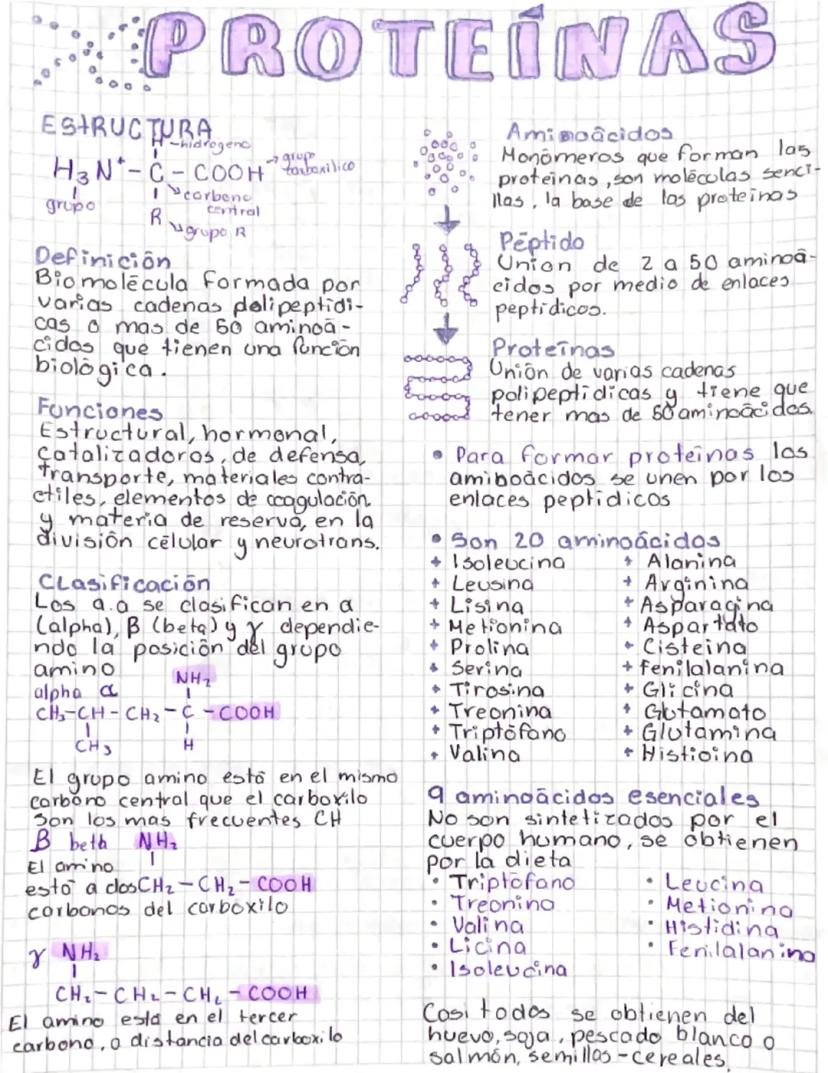 PROTEÍNAS
ESTRUCTURA
H-hidrogeno
H3N+-C-COOH → grupo carboxilico
grupo
carbono central
R
grupo R
Definición
Biomolécula formada por
varias cadenas polipeptidi-
cas o mas de 50 aminoá-
cidos que tienen una función
biológica.
Funciones
Estructural, hormonal,
catalizadoros, de defensa,
transporte, materiales contra-
ctiles, elementos de coagulación
y materia de reserva, en la
división célular y neurotrans.
Clasificación
Los a.a se clasifican en a
(alpha), B (beta) y γ dependie-
ndo la posición del grupo
amino
alpha α
NH2
CH3-CH-CH2-C-COOH
CH3 H
El grupo amino está en el mismo
carbono central que el carboxilo
Son los mas frecuentes CH
B beth NH2
El amino
está a dos CH2-CH2-COOH
carbonos del carboxilo
γ NH2
CH2-CH2-CH2-COOH
El amino está en el tercer
carbono, a distancia del carboxilo
Aminoácidos
Monómeros que forman las
proteinas, son moléculas senci-
llas, la base de las proteinas
Péptido
Union de 2 a 50 aminoá-
cidos por medio de enlaces
peptídicos.
Proteínas
Unión de varias cadenas
polipeptidicas y tiene que
tener mas de 50 aminoácidos
• Para formar proteinas los
amiboácidos se unen por los
enlaces peptidicos
• Son 20 aminoácidos
+ Isoleucina
+ Leusina
+ Lisina
+ Metionina
+ Prolina
+ Serina
+ Tirosina
+ Treonina
+ Triptófano
+ Valina
+ Alanina
+ Arginina
+ Asparagina
+ Aspartato
+ Cisteina
+ fenilalanina
+ Glicina
+ Glutamato
+ Glutamina
+ Histioina
9 aminoácidos esenciales
No son sintetizados por el
cuerpo humano, se obtienen
por la dieta
• Triptófano
• Treonino
• Valina
• Licina
• Isoleucina
• Leucina
• Metionina
• Histidina
• Fenilalanino
Casi todos se obtienen del
huevo, soja, pescado blanco o
salmón, semillas-cereales.